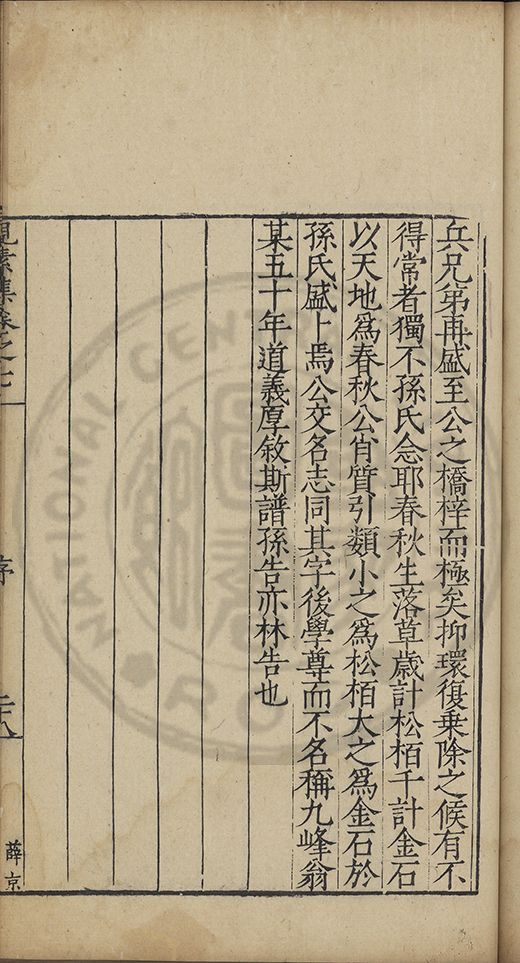 兵兄弟再盛至公之橋梓而極矣抑環復乗除之候有不
得常者獨不孫氏念耶春秋生落草歳計松栢千計金石
以天地爲春秋公肖質引類小之爲松栢大之爲金石於
孫氏盛卜焉公交名志同其字後學尊而不名稱九峰翁
某五十年道義厚敘斯譜孫告亦林告也
見素集卷之七
序
薛京